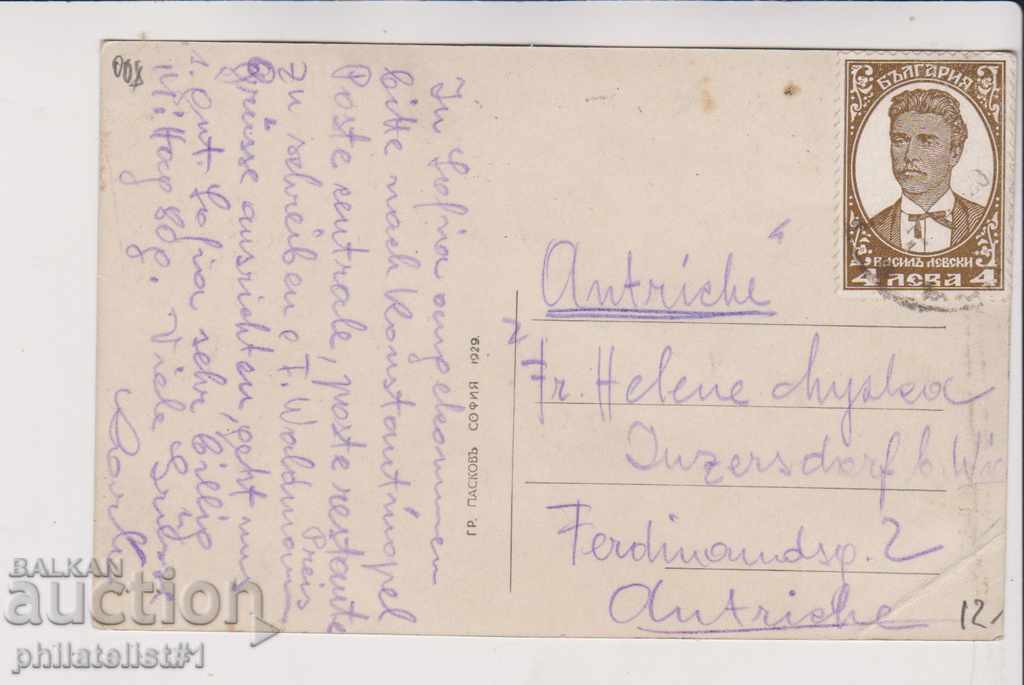 In Sofia angekommen
bitte nach Konstantinopel
Poste centrale, poste restante
zu schreiben T. Waldmann
Grüsse ausrichten, geht uns
gut. Sofia sehr billig Preis
1. Mittag 80g. Viele Grüsse
Karl
ГР. ПАСКОВЪ СОФИЯ 1929.
БЪЛГАРИЯ
ВАСИЛЪ ЛЕВСКИ
4 ЛЕВА 4
Autriche
Fr. Helene
Inzersdorf b. Wien
Ferdinandsg. 2
Autriche
12.
BALKAN
auction
philatelist#1